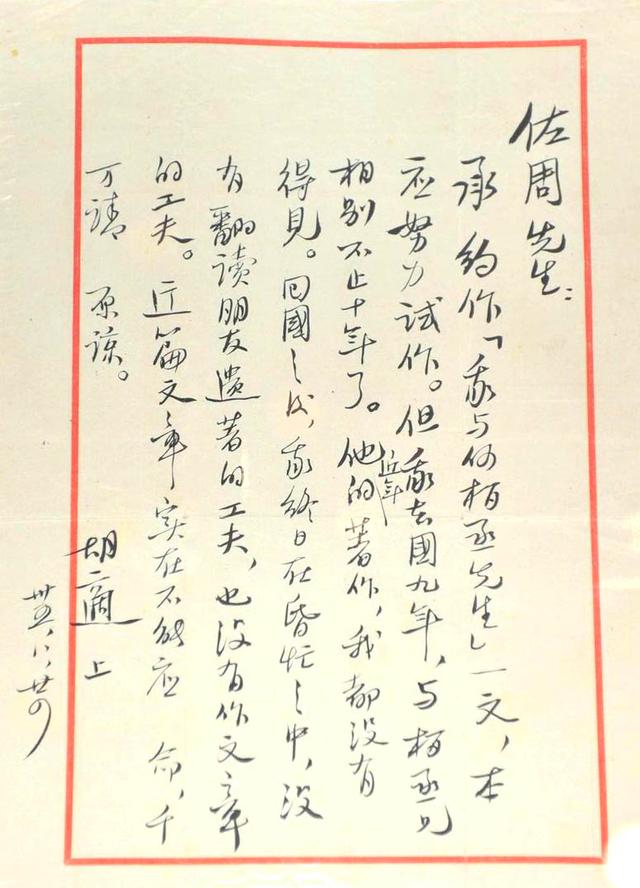 佐周先生：
承 約作「我与何柏丞先生」一文，本
应努力试作。但我去國九年，与柏丞兄
相别不止十年了。他的近年著作，我都没有
得見。回國之後，我終日在昏忙之中，没
有翻读朋友遗著的工夫，也没有作文章
的工夫。这篇文章实在不能应 命，千
万請 原諒。
胡適上
卅五，八，廿四